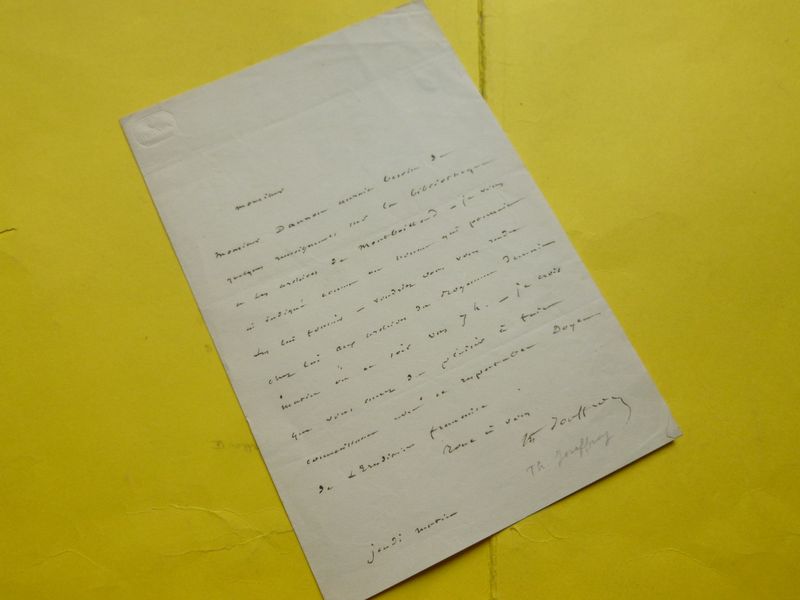 monsieur
Monsieur Daunou aurait besoin de
quelques renseignemens sur la bibliotheque
et les archives de Montbeillard – je vous
ai indiqué comme un homme qui pourrait
les lui fournir – voudriez vous vous rendre
chez lui aux archives du Royaume demain
matin ou ce soir vers 7 h. – je crois
que vous aurez du plaisir à faire
connaissance avec ce respectable Doyen
de l'Erudition francaise.
Tout à vous
Th Jouffroy
Th Jouffroy
jeudi matin